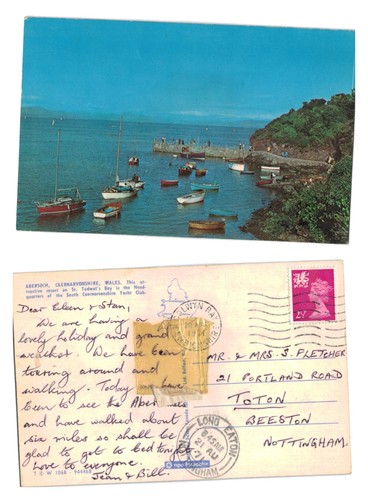 ABERSOCH, CAERNARVONSHIRE, WALES. This at-
tractive resort on St. Tudwal's Bay is the Head-
quarters of the South Caernarvonshire Yacht Club.
Dear Eileen & Stan,
We are having a
lovely holiday and grand
weather. We have been
touring around and
walking. Today we have
been to see the Aber
and have walked about
six miles so shall be
glad to get to bed tonight
Love to everyone.
Jean & Bill.
MR. & MRS. S. FLETCHER
21 PORTLAND ROAD
TOTON
BEESTON
NOTTINGHAM.
LONG EATON
8.45AM
21 AU